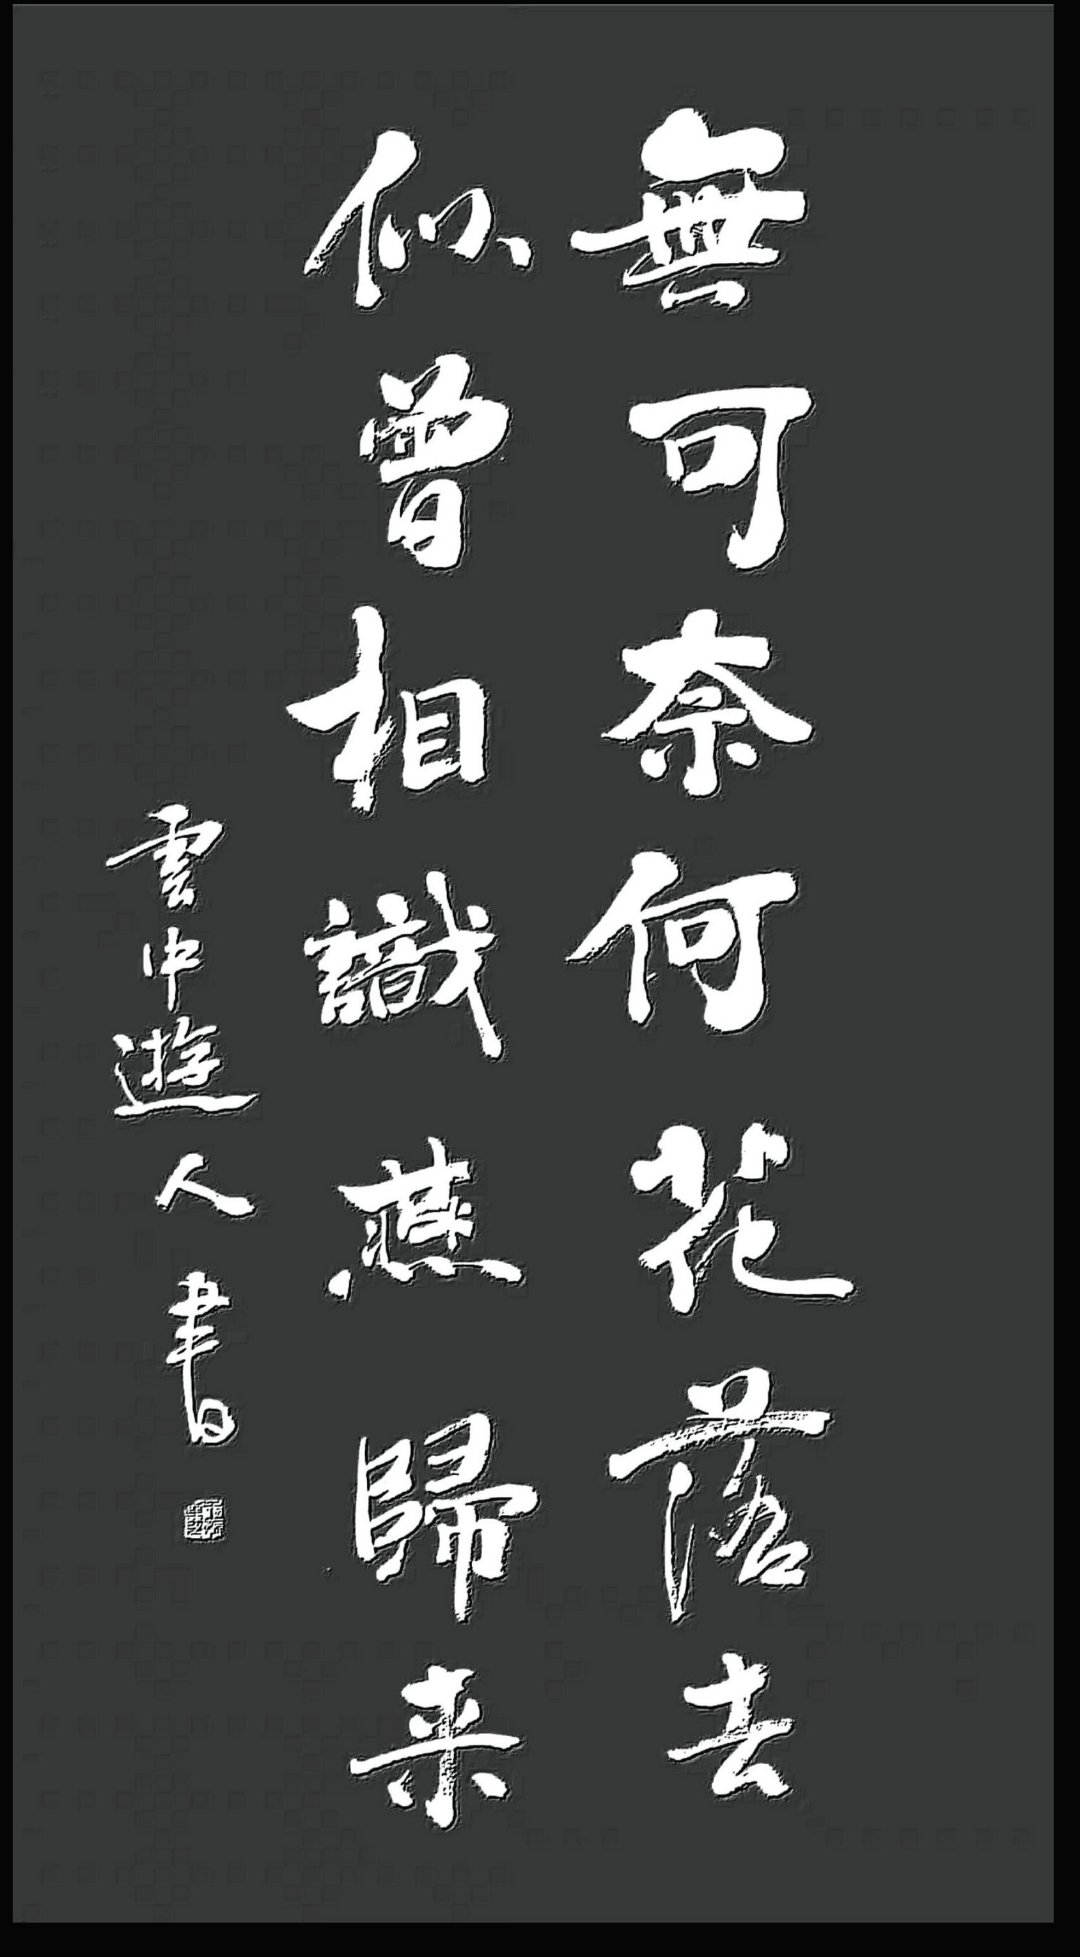 無可奈何花落去
似曾相識燕歸来
雲中遊人書